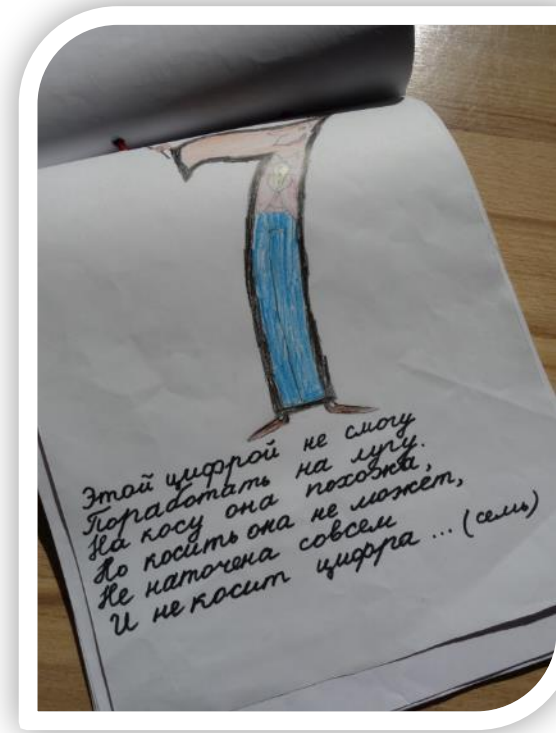 Этой цифрой не смогу
Поработать на лугу.
На косу она похожа,
Но косить она не может,
Не наточена совсем
И не косит цифра ... (семь)